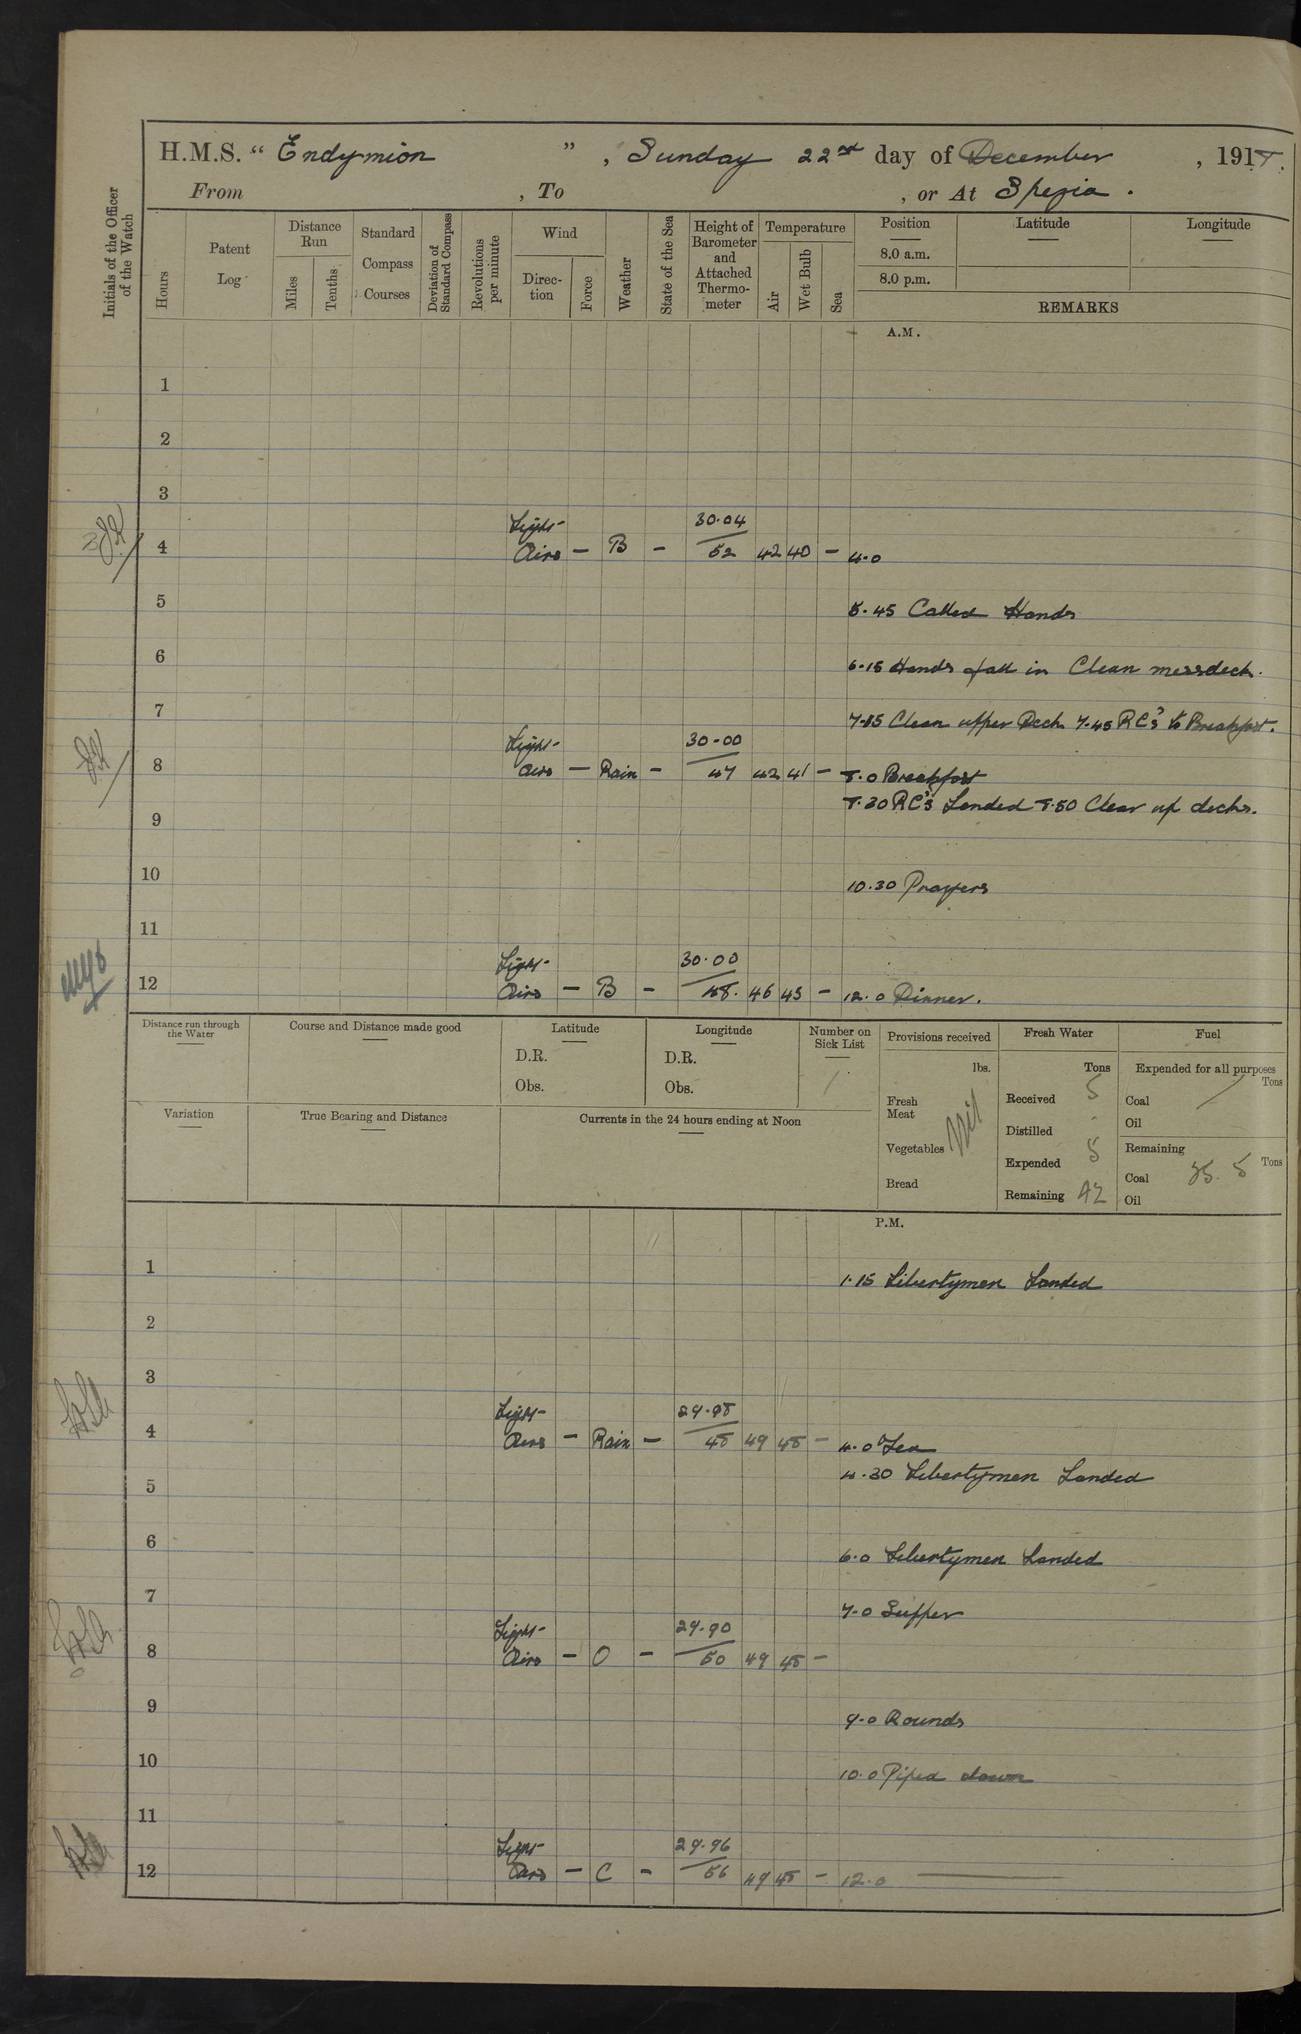 H.M.S. " Endymion " , Sunday 22nd day of December , 1918.
From , To , or At Spezia .
Initials of the Officer of the Watch
Hours
Patent Log
Distance Run
Miles
Tenths
Standard Compass Courses
Deviation of Standard Compass
Revolutions per minute
Wind
Direc-tion
Force
Weather
State of the Sea
Height of Barometer and Attached Thermo-meter
Temperature
Air
Wet Bulb
Sea
Position Latitude Longitude
8.0 a.m.
8.0 p.m.
REMARKS
A.M.
1
2
3
Light 30.04
4 Airs - B - 52 42 40 - 4.0
5 5.45 Called Hands
6 6.15 Hands fall in Clean messdeck.
7 7.15 Clean upper Deck 7.45 RC's to Breakfast.
Light 30.00
8 Airs - Rain - 47 42 41 - 8.0 Breakfast
8.30 RC's Landed 8.50 Clear up decks.
9
10 10.30 Prayers
11
Light 30.00
12 Airs - B - 48. 46 45 - 12.0 Dinner.
Distance run through the Water
Course and Distance made good
Latitude
D.R.
Obs.
Longitude
D.R.
Obs.
Number on Sick List
1
Variation
True Bearing and Distance
Currents in the 24 hours ending at Noon
Provisions received
lbs.
Fresh Meat
Vegetables
Bread
Nil
Fresh Water
Tons
Received 5
Distilled -
Expended 5
Remaining 42
Fuel
Expended for all purposes
Tons
Coal
Oil
Remaining
Tons
Coal 35.5
Oil
P.M.
1 1.15 Libertymen Landed
2
3
Light 29.98
4 Airs - Rain - 48 49 48 - 4.0 Tea
4.30 Libertymen Landed
5
6 6.0 Libertymen Landed
7 7.0 Supper
Light 29.90
8 Airs - O - 50 49 48 -
9 9.0 Rounds
10 10.0 Piped down
11
Light 29.96
12 Airs - C - 56 49 48 - 12.0